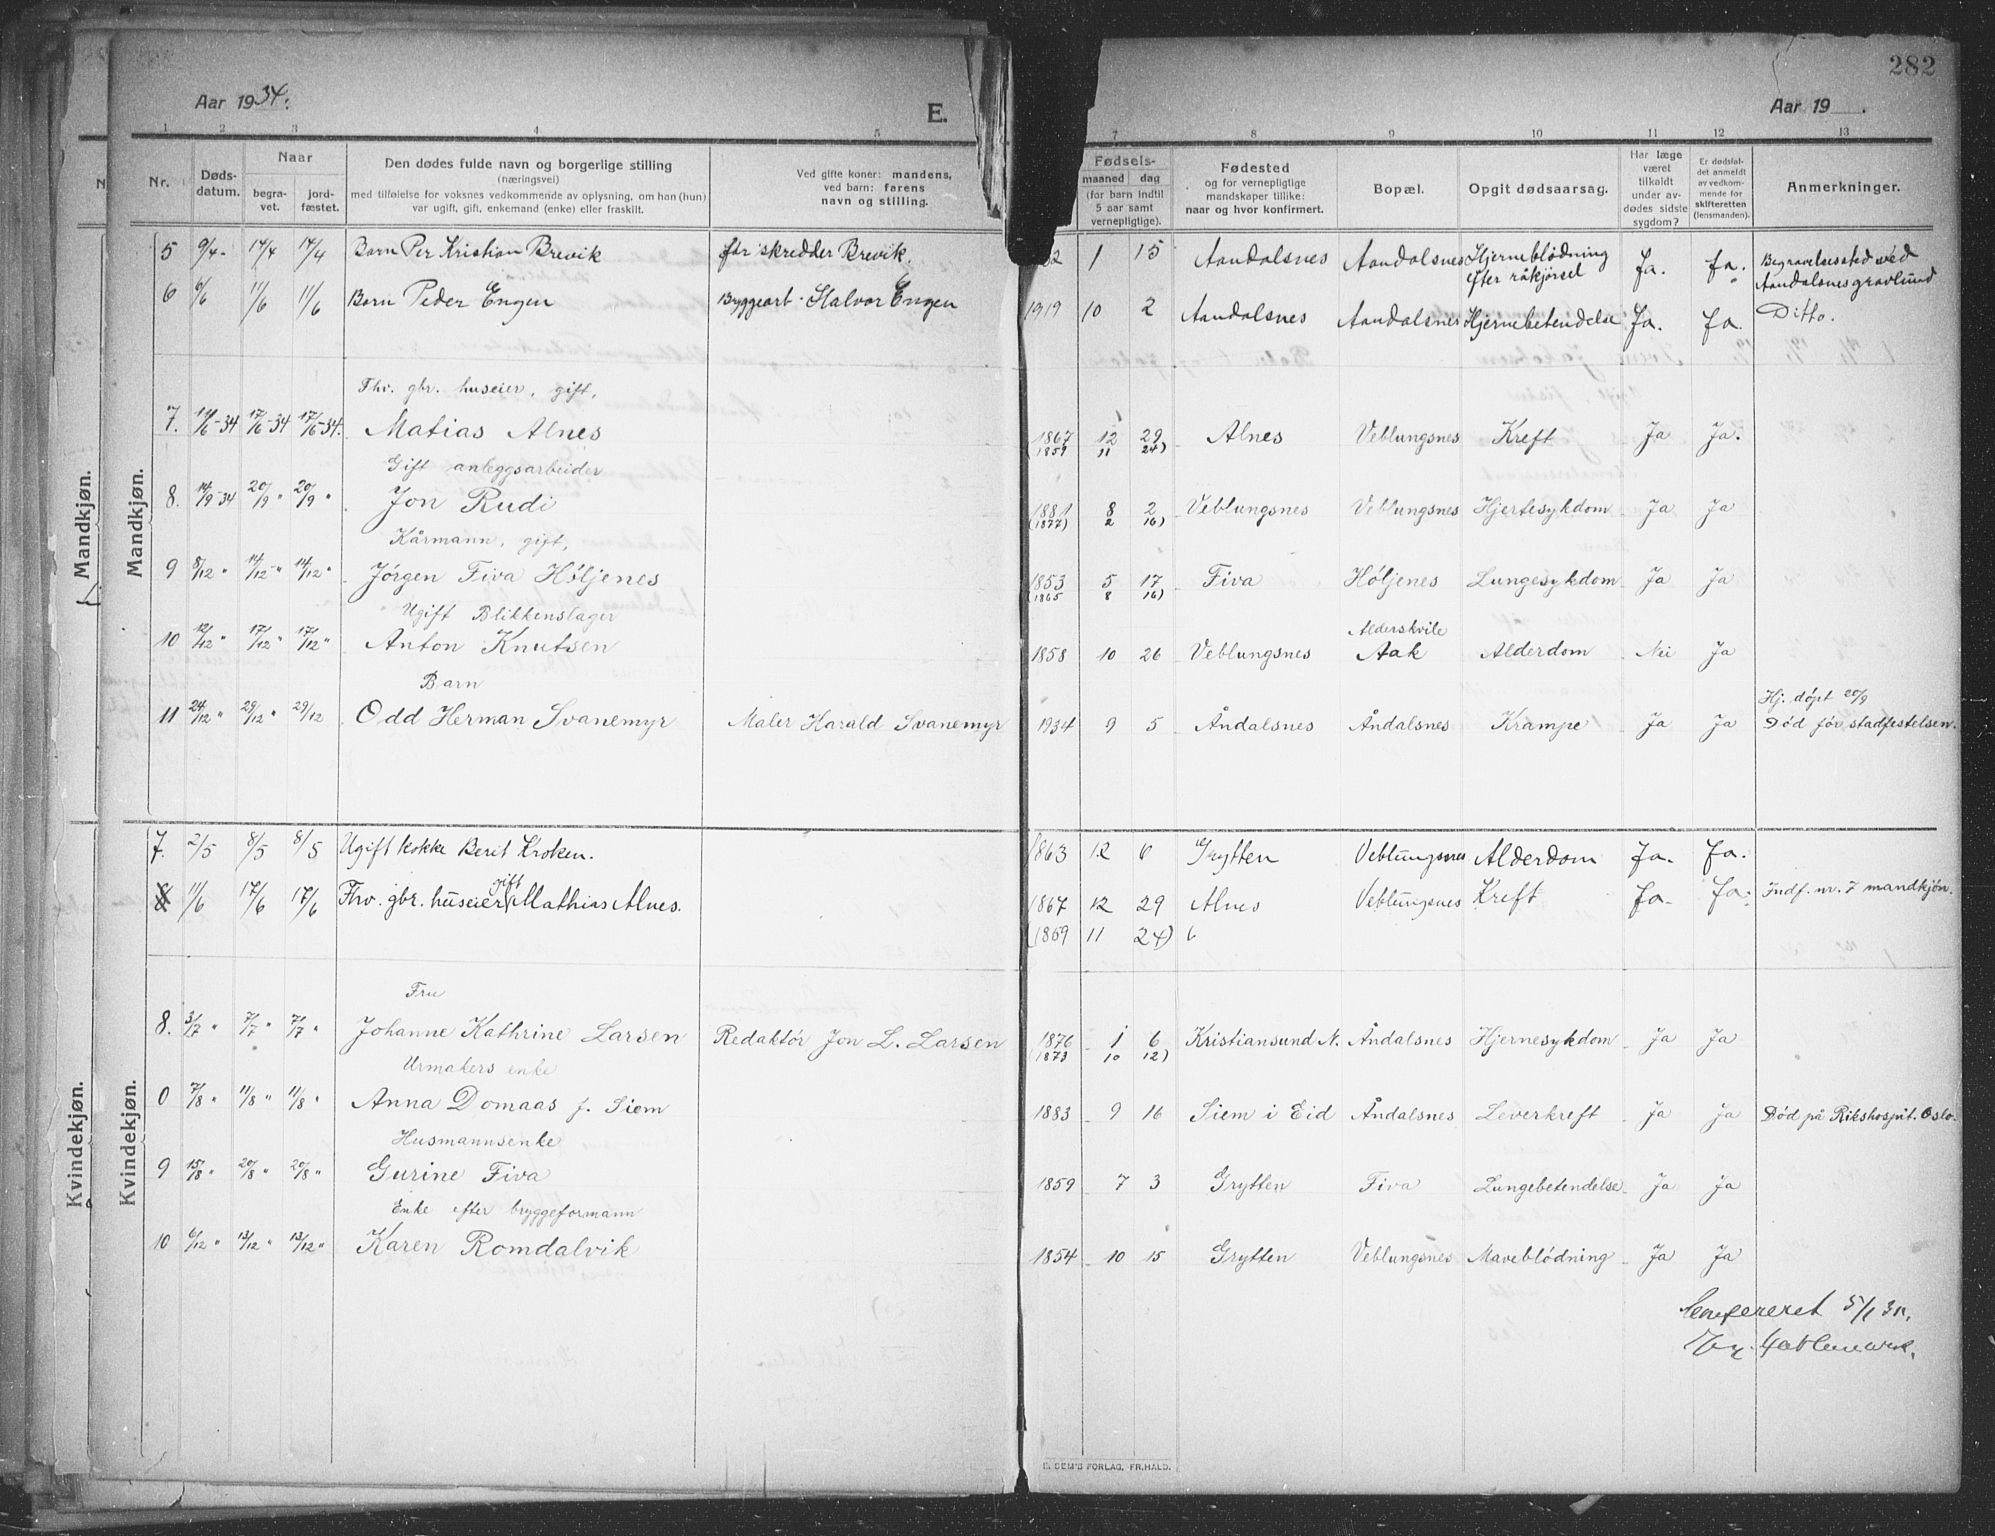 282
Aar 1934.
E.
Aar 19 .
1 2 3 4 5 7 8 9 10 11 12 13
Nr.
Døds-
datum.
Naar
begra-
vet.
jord-
fæstet.
Den dødes fulde navn og borgerlige stilling
(næringsvei)
med tilføielse for voksnes vedkommende av oplysning, om han (hun)
var ugift, gift, enkemand (enke) eller fraskilt.
Ved gifte koner: mandens,
ved barn: farens
navn og stilling.
Fødsels-
maaned dag
(for barn indtil
5 aar samt
vernepligtige).
Fødested
og for vernepligtige
mandskaper tillike:
naar og hvor konfirmert.
Bopæl.
Opgit dødsaarsag.
Har læge
været
tilkaldt
under av-
dødes sidste
sygdom?
Er dødsfal-
det anmeldt
av vedkom-
mende for
skifteretten
(lensmanden).
Anmerkninger.
Mandkjøn.
Mandkjøn.
5 9/4- 17/4 17/4 Barn Per Kristian Brevik far skredder Brevik. 1 15 Aandalsnes Aandalsnes Hjerneblödning Ja. Ja. Begravelsessted ved
efter råkjørsel Aandalsnes gravlund
6 6/6 11/6 11/6 Barn Peder Engen Byggearb. Halvor Engen 1919 10 2 Aandalsnes Aandalsnes Hjernebetendelse Ja. Ja. Ditto.
Fhv. gbr. huseier, gift,
7. 11/6-34 17/6-34 17/6-34. Matias Alnes 1867 12 29 Alnes Veblungsnes Kreft Ja Ja.
(1859 11 24)
Gift anleggsarbeider
8. 14/9-34 20/9 " 20/9 " Jon Rudi 1881 8 2 Veblungsnes Veblungsnes Hjertesykdom Ja Ja
(1877) 2 16)
Kårmann, gift,
9 8/12 " 14/12 " 14/12 " Jörgen Fiva Höljenes 1853 5 17 Fiva Höljenes Lungesykdom Ja Ja
(1865 8 16)
Ugift Blikkenslager Alderskvile
10 12/12 " 17/12 " 17/12 " Anton Knutsen 1858 10 26 Veblungsnes Aak Alderdom Nei Ja
Barn Hj. döpt 20/9
11 24/12 " 29/12 " 29/12 Odd Herman Svanemyr Maler Harald Svanemyr 1934 9 5 Åndalsnes Åndalsnes Krampe Ja Ja Död för stadfestelsen.
Kvindekjøn.
Kvindekjøn.
7. 2/5 8/5 8/5 Ugift kokke Berit Kroken. 1863 12 6 Grytten Veblungsnes Alderdom Ja. Ja.
8 11/6 17/6 17/6 Fhv. gbr. huseier gift Mathias Alnes. 1867 12 29 Alnes Veblungsnes Kreft Ja. Ja. Indf. nr. 7 mandkjön.
(1869 11 24)
Fru
8. 3/7 " 7/7 " 7/7 " Johanne Kathrine Larsen Redaktör Jon L. Larsen 1876 1 6 Kristiansund N. Åndalsnes Hjernesykdom Ja Ja
(1873 10 12)
Urmakers enke
0 7/8 " 11/8 " 11/8 " Anna Domaas f. Siem 1883 9 16 Siem i Eid Åndalsnes Leverkreft Ja Ja Död på Rikshospit. Oslo.
Husmannsenke
9 15/8 " 20/8 " 20/8 " Gurine Fiva 1859 7 3 Grytten Fiva Lungebetendelse Ja Ja
Enke efter bryggeformann
10 6/12 " 13/12 " 13/12 " Karen Romdalvik 1854 10 15 Grytten Veblungsnes Maveblödning Ja Ja
5/1 35.
FORLAG, FR.HALD.